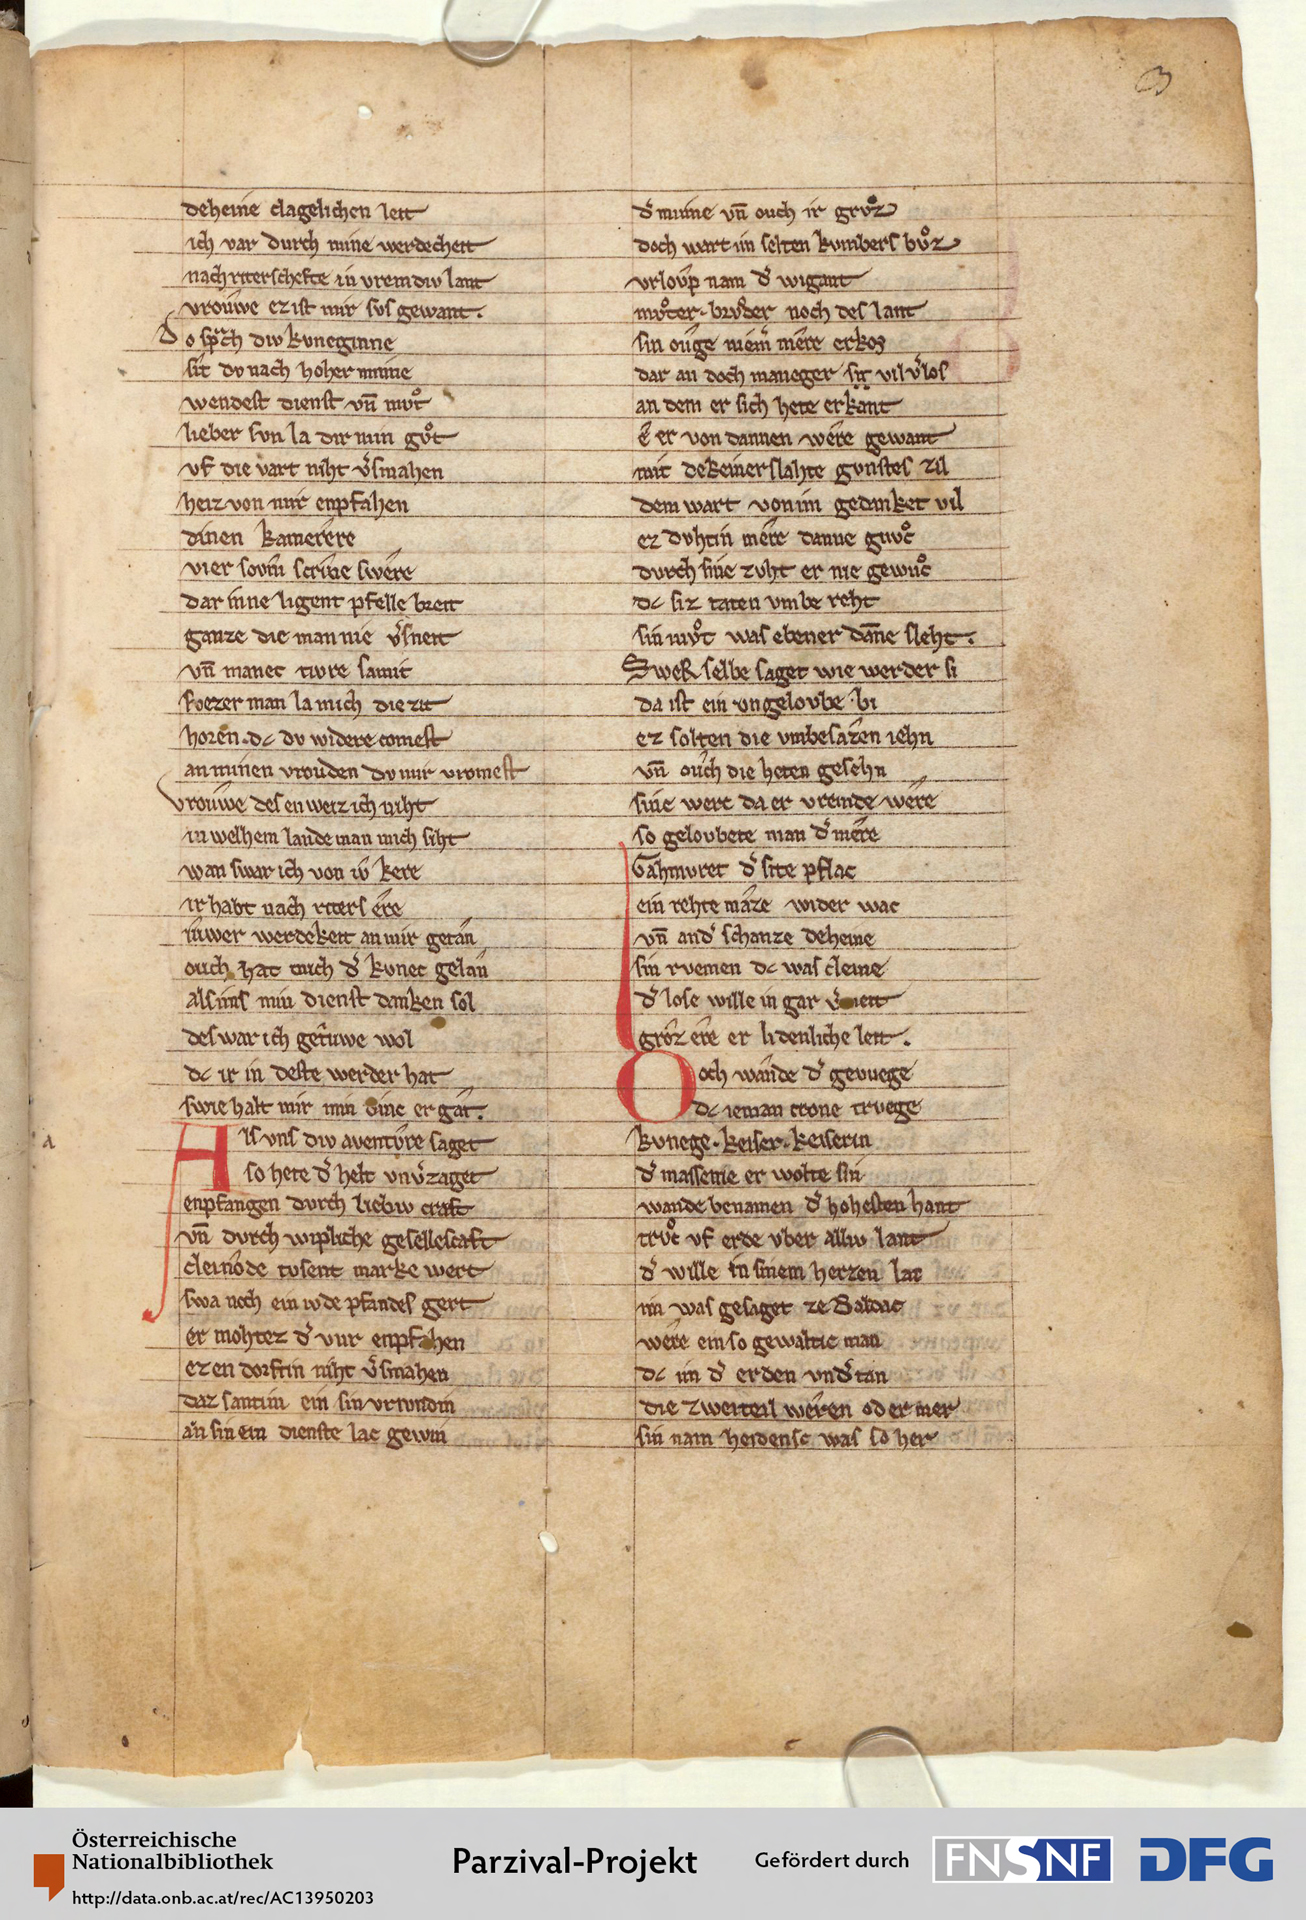 3
deheine clagelichen leit
ich var durch mine werdecheit
nach riterschefte in vremdiv lant
vrouwe ez ist mir svs gewant.
Do sprach div kvneginne
sit dv nach hoher minne
wendest dienst vn̄ mvͦt
lieber svn la dir min gvͦt
vf die vart niht v̓smahen
heiz von mir enpfahen
dinen kamerere
vier sovm scrine swere
dar inne ligent pfelle breit
ganze die man nie v̓sneit
vn̄ manec tivre samit
svezer man la mich die zit
horen dc dv widere comest
an minen vrouden dv mir vromest
vrouwe des en weiz ich niht
in welhem lande man mich siht
wan swar ich von iv̓ kere
ir habt nach riters ere
iuwer werdekeit an mir getan
ouch hat mich d̓ kvnec gelan
als ims min dienst danken sol
des war ich getruwe wol
dc ir in deste werder hat
swie halt mir min dinc ergat.
Als vns div aventvre saget
so hete d̓ helt vnv̓zaget
enpfangen dvrch liebiv craft
vn̄ dvrch wipliche gesellescaft
cleinode tvsent marke wert
swa noch ein ivde pfandes gert
er mohtez d̓ vur enpfahen
ez en dorftin niht v̓smahen
daz santim ein sin vrivndin
an sin ein dienste lac gewin
a
d̓ minne vn̄ ouch ir grvͦz
doch wart im selten kvmbers bvͦz
vrloup nam d̓ wigant
mvͦter. brvͦder noch des lant
sin ouge niem̄ mere erkos
dar an doch maneger sit vil v̓los
an dem er sich hete erkant
e er von dannen were gewant
mit dekeiner slahte gvnstes zil
dem wart von im gedanket vil
ez dvhtin mere danne gnvͦc
dvrch sine zvht er nie gewuͦc
dc siz taten vmbe reht
sin mvͦt was ebener dan̄e sleht.
Swer selbe saget wie werder si
da ist ein vngelovbe bi
ez solten die vmbesazen iehn
vn̄ ouch die heten gesehn
sine werc da er vremde were
so gelovbete man d̓ mere
Gahmvret d̓ site pflac
ein rehte maze wider wac
vn̄ and̓ schanze deheine
sin rvemen dc was cleine
d̓ lose wille in gar v̓meit
groz ere er lidenliche leit.
Doch wande d̓ gevuege
dc ieman crone trvege
kvnege. keiser. keiserin
d̓ massenie er wolte sin
wande benamen d̓ hohesten hant
trvͦc vf erde vber alliv lant
d̓ wille in sinem herzen lac
im was gesaget ze Baldac
were ein so gewaltic man
dc im d̓ erden vnd̓tan
die zweiteil weren oder mer
sin nam heidensc was so her
Österreichische
Nationalbibliothek
http://data.onb.ac.at/rec/AC13950203
Parzival-Projekt
Gefördert durch
FNSNF
DFG